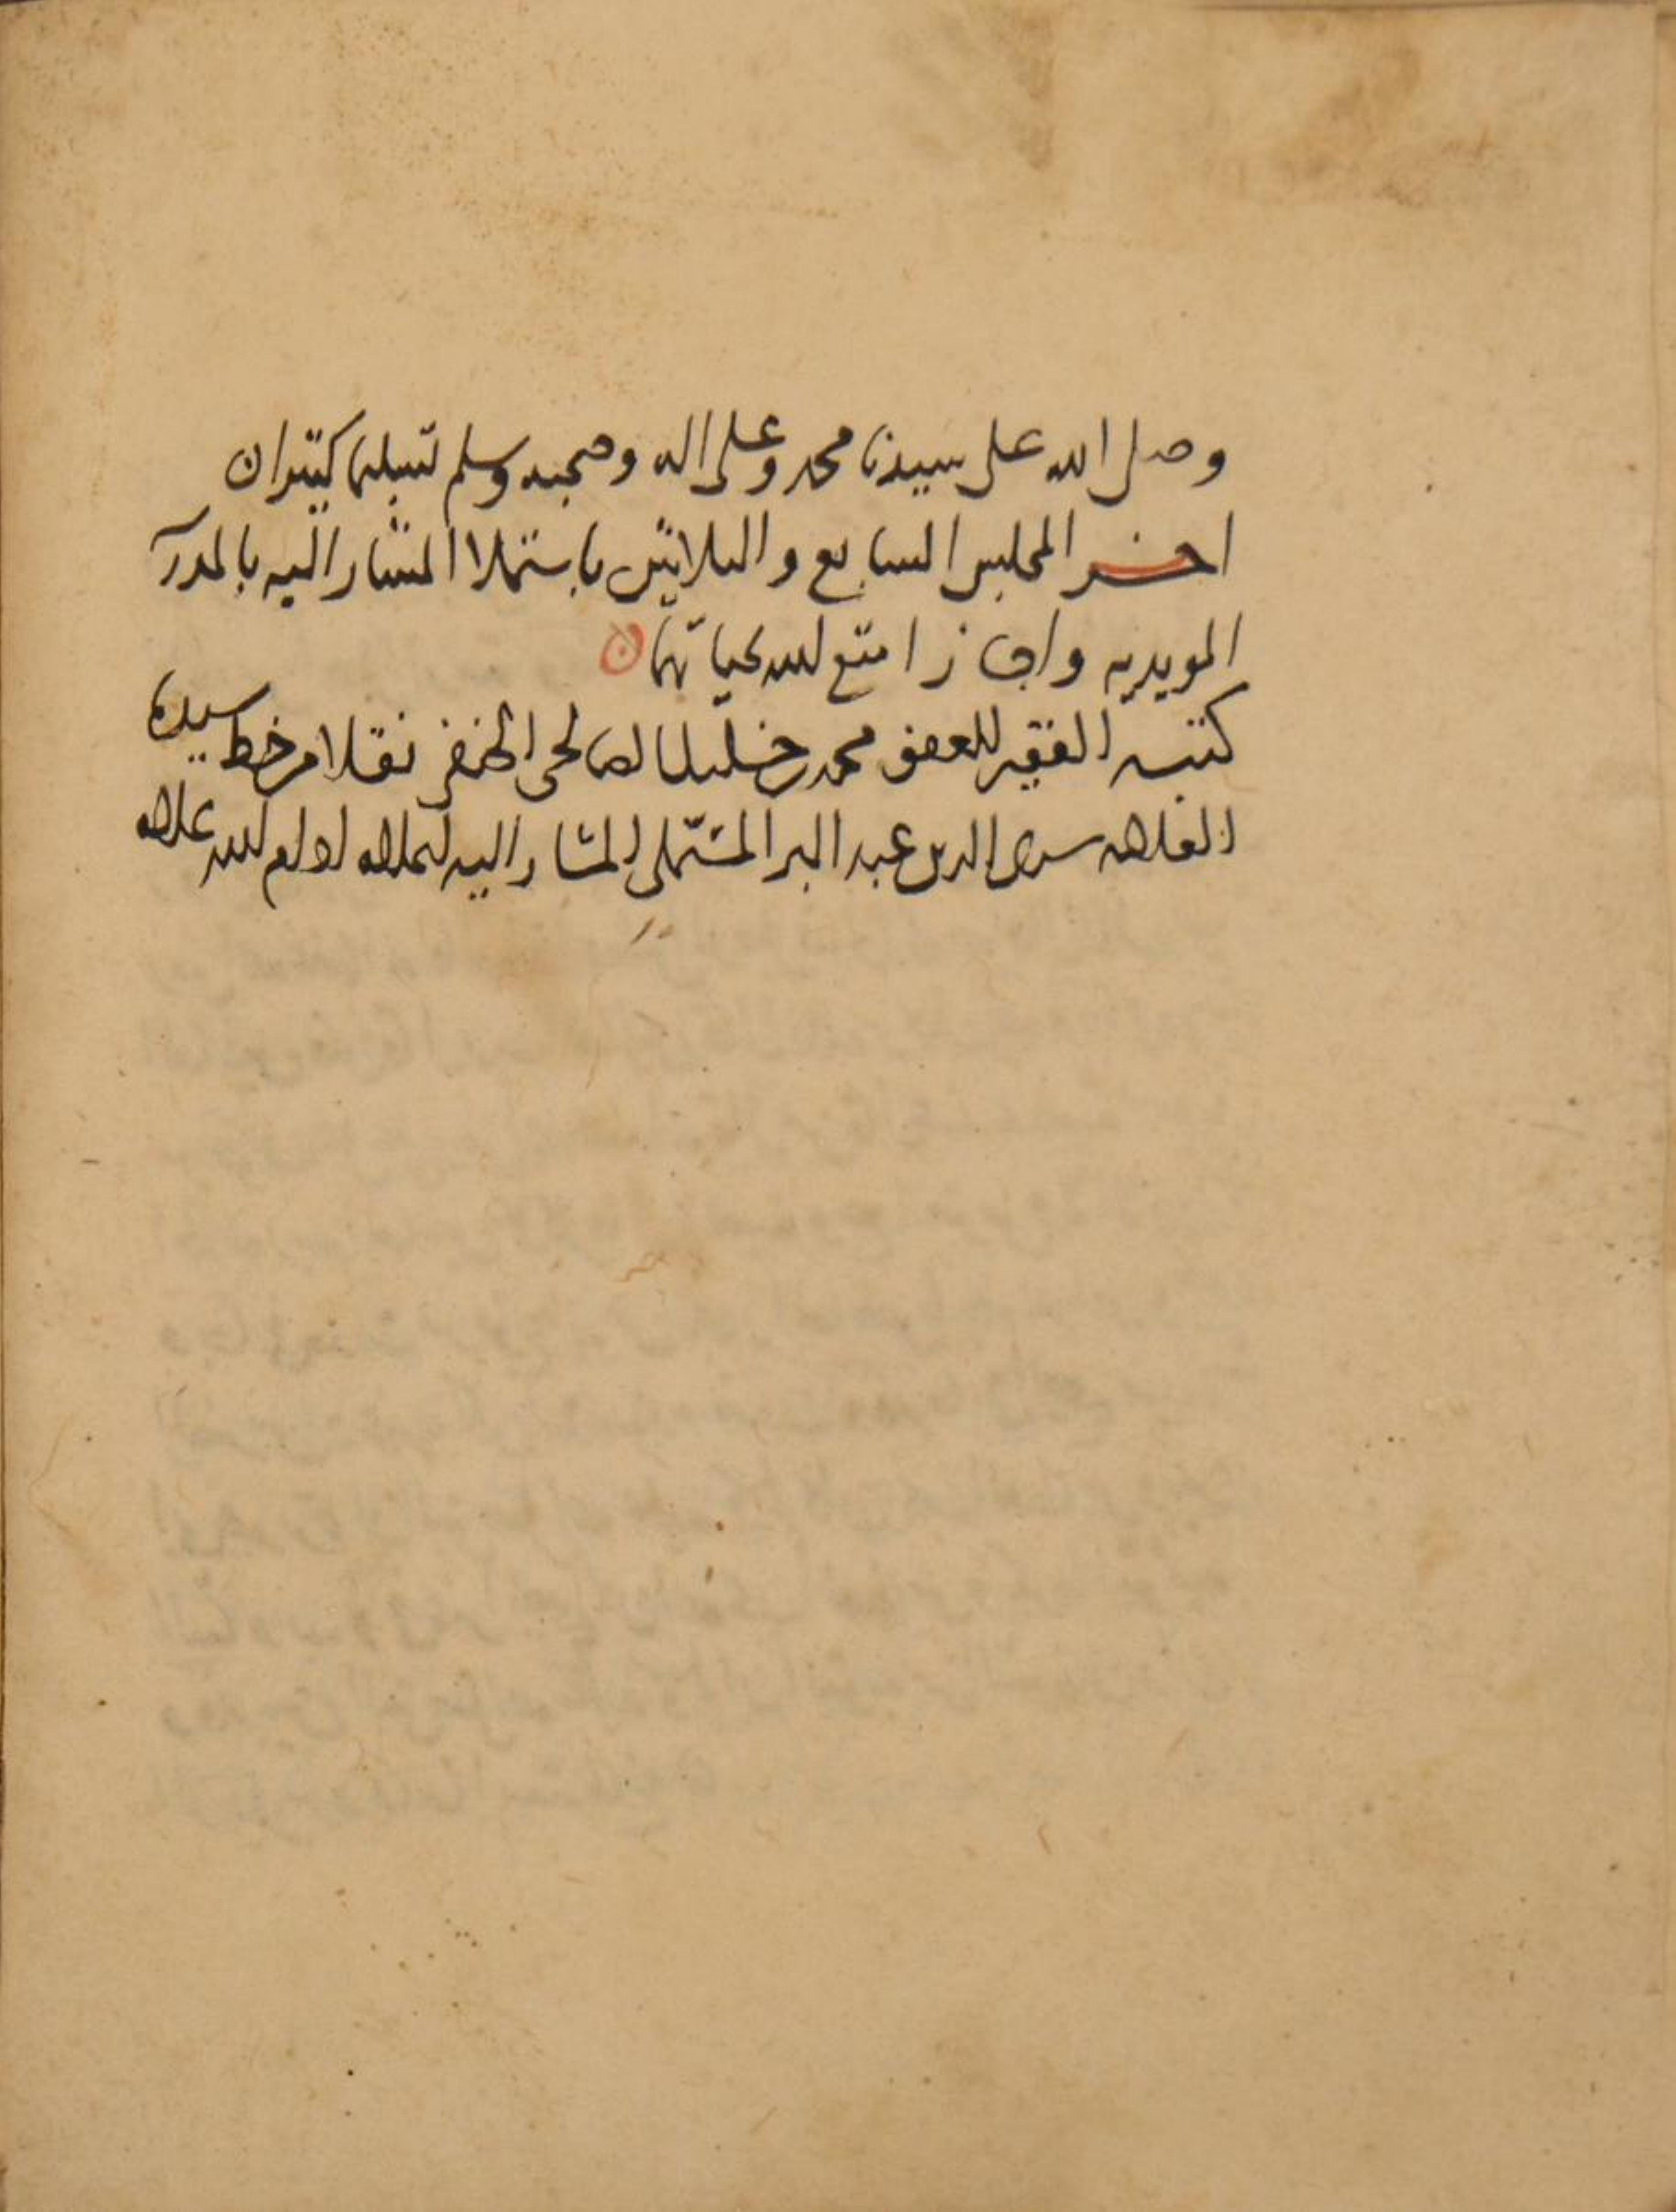 وصلى الله على سيدنا محمد وعلى اله وصحبه وسلم تسليما كثيرا ن
اخر المجلس السابع والثلاثين باستملا المشار اليه بالمدر
المويديه واجاز امتع الله بحياتهما ن
كتبه الفقير للعفو محمد خليل الصالحى الحنفى نقلا من خط سيدنا
العلامه سرى الدين عبد البر المستملى المشار اليه اعلاه ادام الله علاه